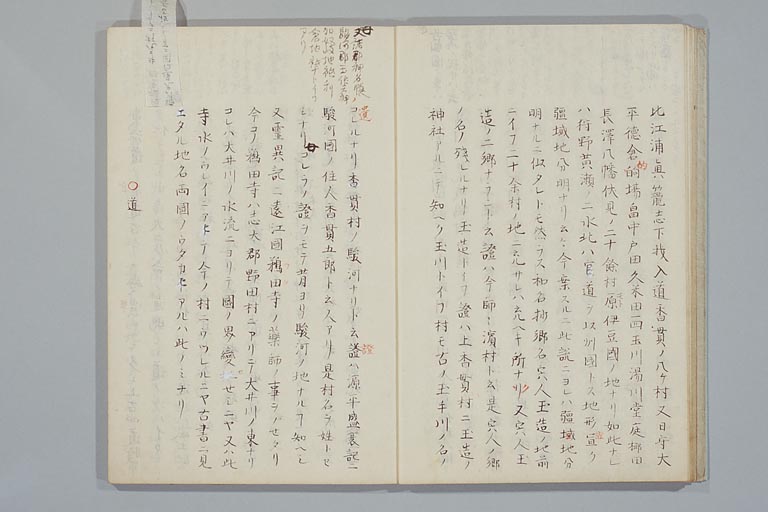 比江浦眞籠志下我入道香貫ノ八ケ村又日守大
平德倉的場畠中戸田久米田四玉川湯川堂庭柳田
長澤八幡伏見ノ二十餘村原伊豆國ノ地ナリ如此ナレ
ハ狩野黄瀬ノ二水北ハ官道ヲ以州國トス地形宜ク
疆域地分明ナリ云々今案スルニ此説ニヨレハ疆域地分
明ナルニ似タレトモ然ラス和名抄郷名宍人玉造ノ地前
ニイフ二十余村ノ地ニ充サレハ充ヘキ所ナリ又宍人玉
造ノ二郷ナラント云證ハ今師ミ濱村ト云是宍人ノ郷
ノ名ノ殘レルナリ玉造トイフ證ハ上香貫村ニ玉造ノ
神社アルニテ知ヘク玉川トイフ村モ古ノ玉手川ノ名ノ
遺
コレルナリ香貫村ノ駿河ナリト云證ハ源平盛衰記ニ
駿河國ノ住人香貫五郎ト云人アリ是村名ヲ姓トセ
シナリコレラノ證ヲモテ昔ヨリ駿河ノ地ナルヲ知ヘシ
又靈異記ニ遠江國鵜田寺ノ藥師ノ事ヲノセタリ
今コノ鵜田寺ハ志太郡野田村ニアリテ大井川ノ東ナリ
コレハ大井川ノ水流ニヨリテ國ノ界變セシニヤ又ハ此
寺水ノウレイニアヒテ今ノ村ニウツレルニヤ古書ニ見
エタル地名両國ノウタカヒアルハ此ノミナリ
○道